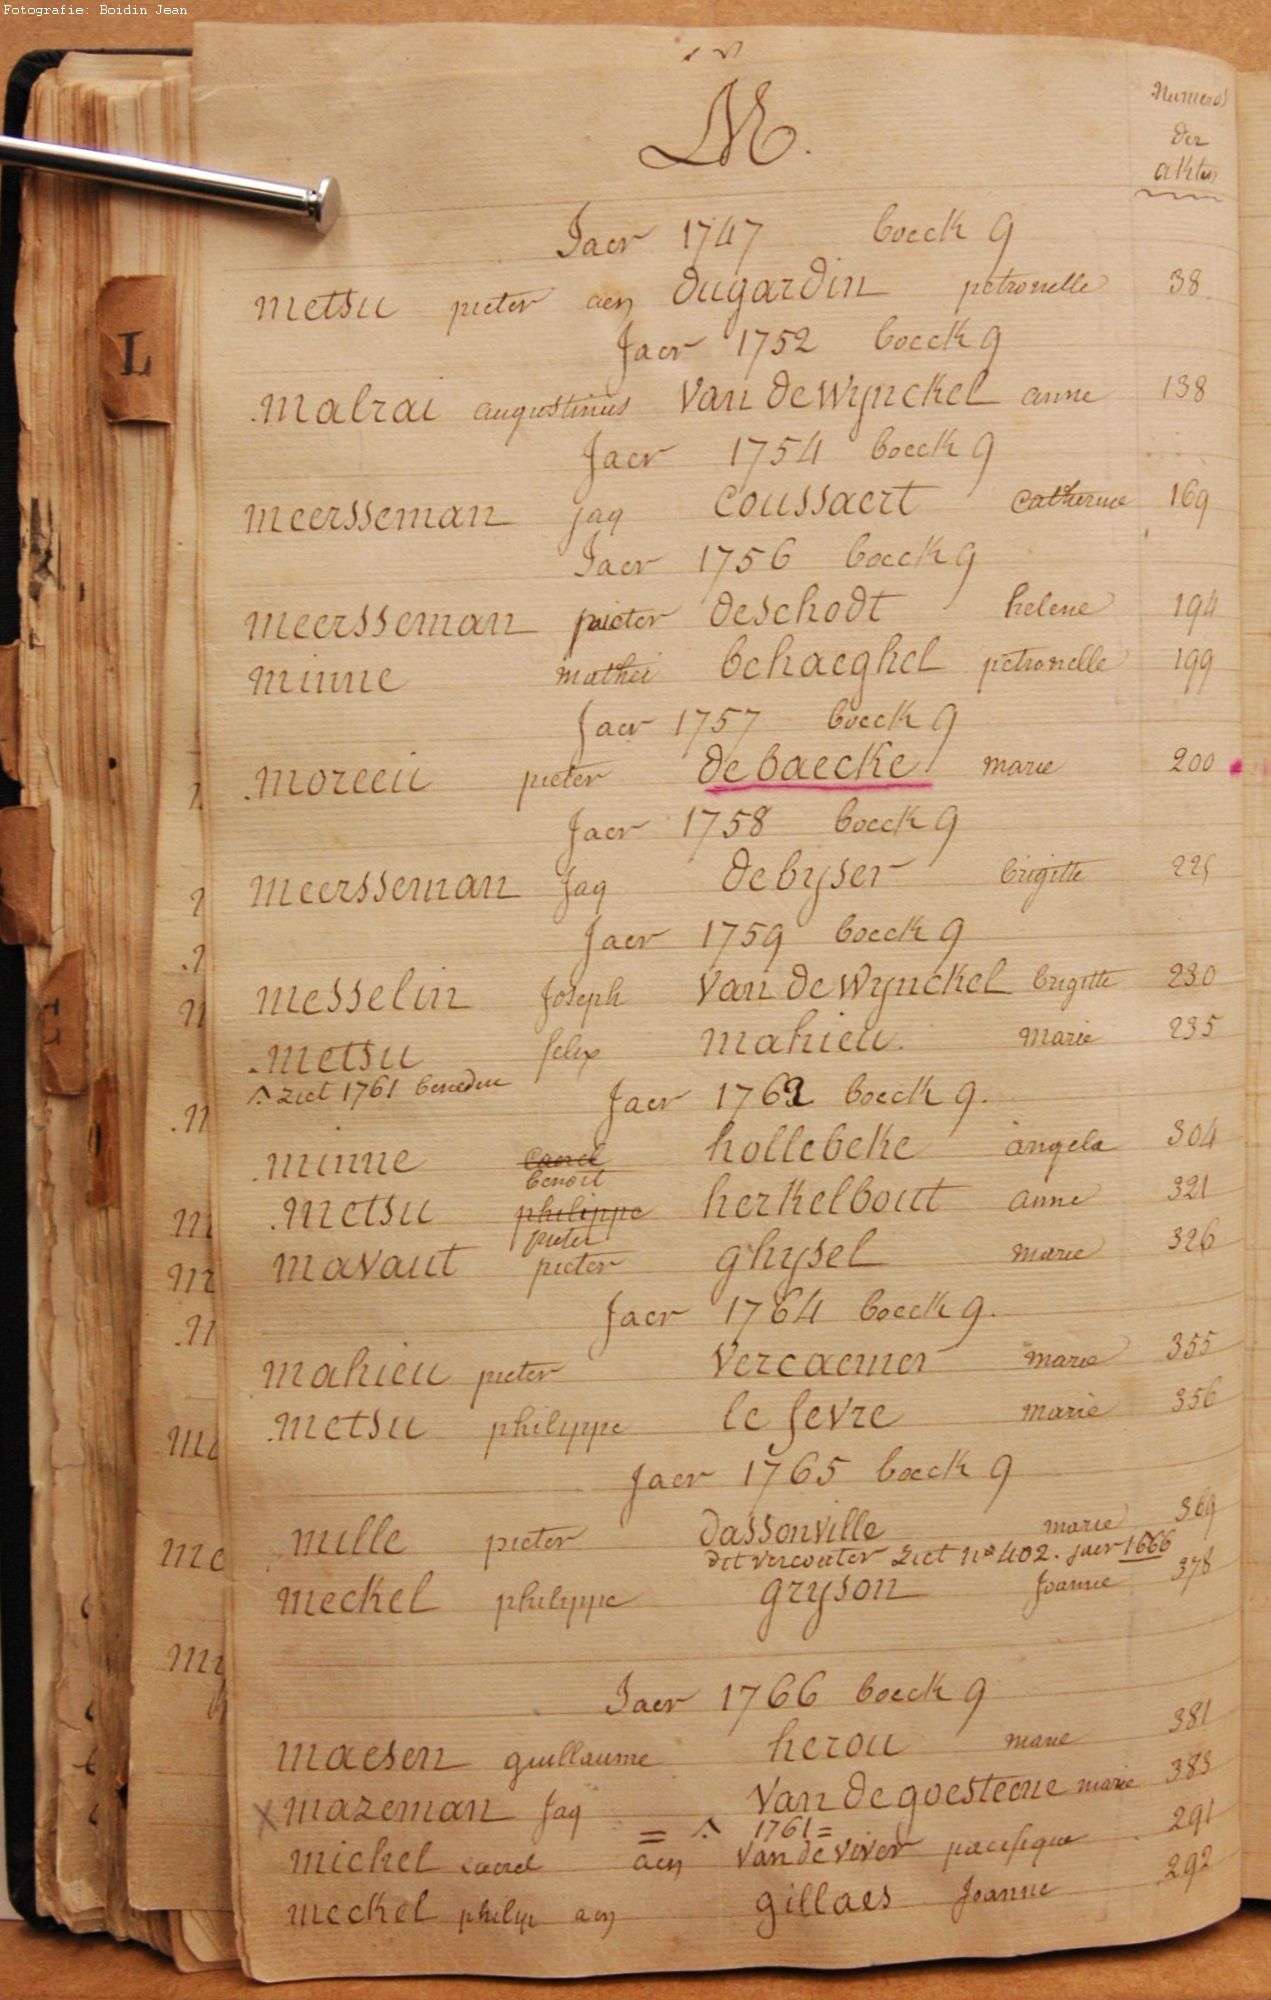 Fotografie: Boidin Jean
M.
Numeros
der
akten
Jaer 1747 boeck 9
metsu pieter aen dugardin petronelle 38
Jaer 1752 boeck 9
malrai augustinus van de wynckel anne 138
Jaer 1754 boeck 9
meersseman jaq coussaert catherine 169
Jaer 1756 boeck 9
meersseman pieter deschodt helene 194
minne mathei behaeghel petronelle 199
Jaer 1757 boeck 9
moreeu pieter de baecke marie 200
Jaer 1758 boeck 9
meersseman jaq debyser brigitte 225
Jaer 1759 boeck 9
messelin joseph van de wynckel brigitte 230
metsu felix mahieu marie 235
ziet 1761 beneden
Jaer 1762 boeck 9.
minne caerel hollebeke angela 304
benoit
metsu philippe herkelbout anne 321
pieter
mavaut pieter ghysel marie 326
Jaer 1764 boeck 9.
mahieu pieter vercaemer marie 355
metsu philippe le fevre marie 356
Jaer 1765 boeck 9
mille pieter dassonville marie 369
dit vercouter ziet no 402. jaer 1666
meckel philippe gryson joanne 378
Jaer 1766 boeck 9
maesen guillaume herou marie 381
x mazeman jaq van de goesteene marie 383
= 1761 =
michel caerel aen van de viver pacifique 291
meckel philip aen gillaes joanne 292
L